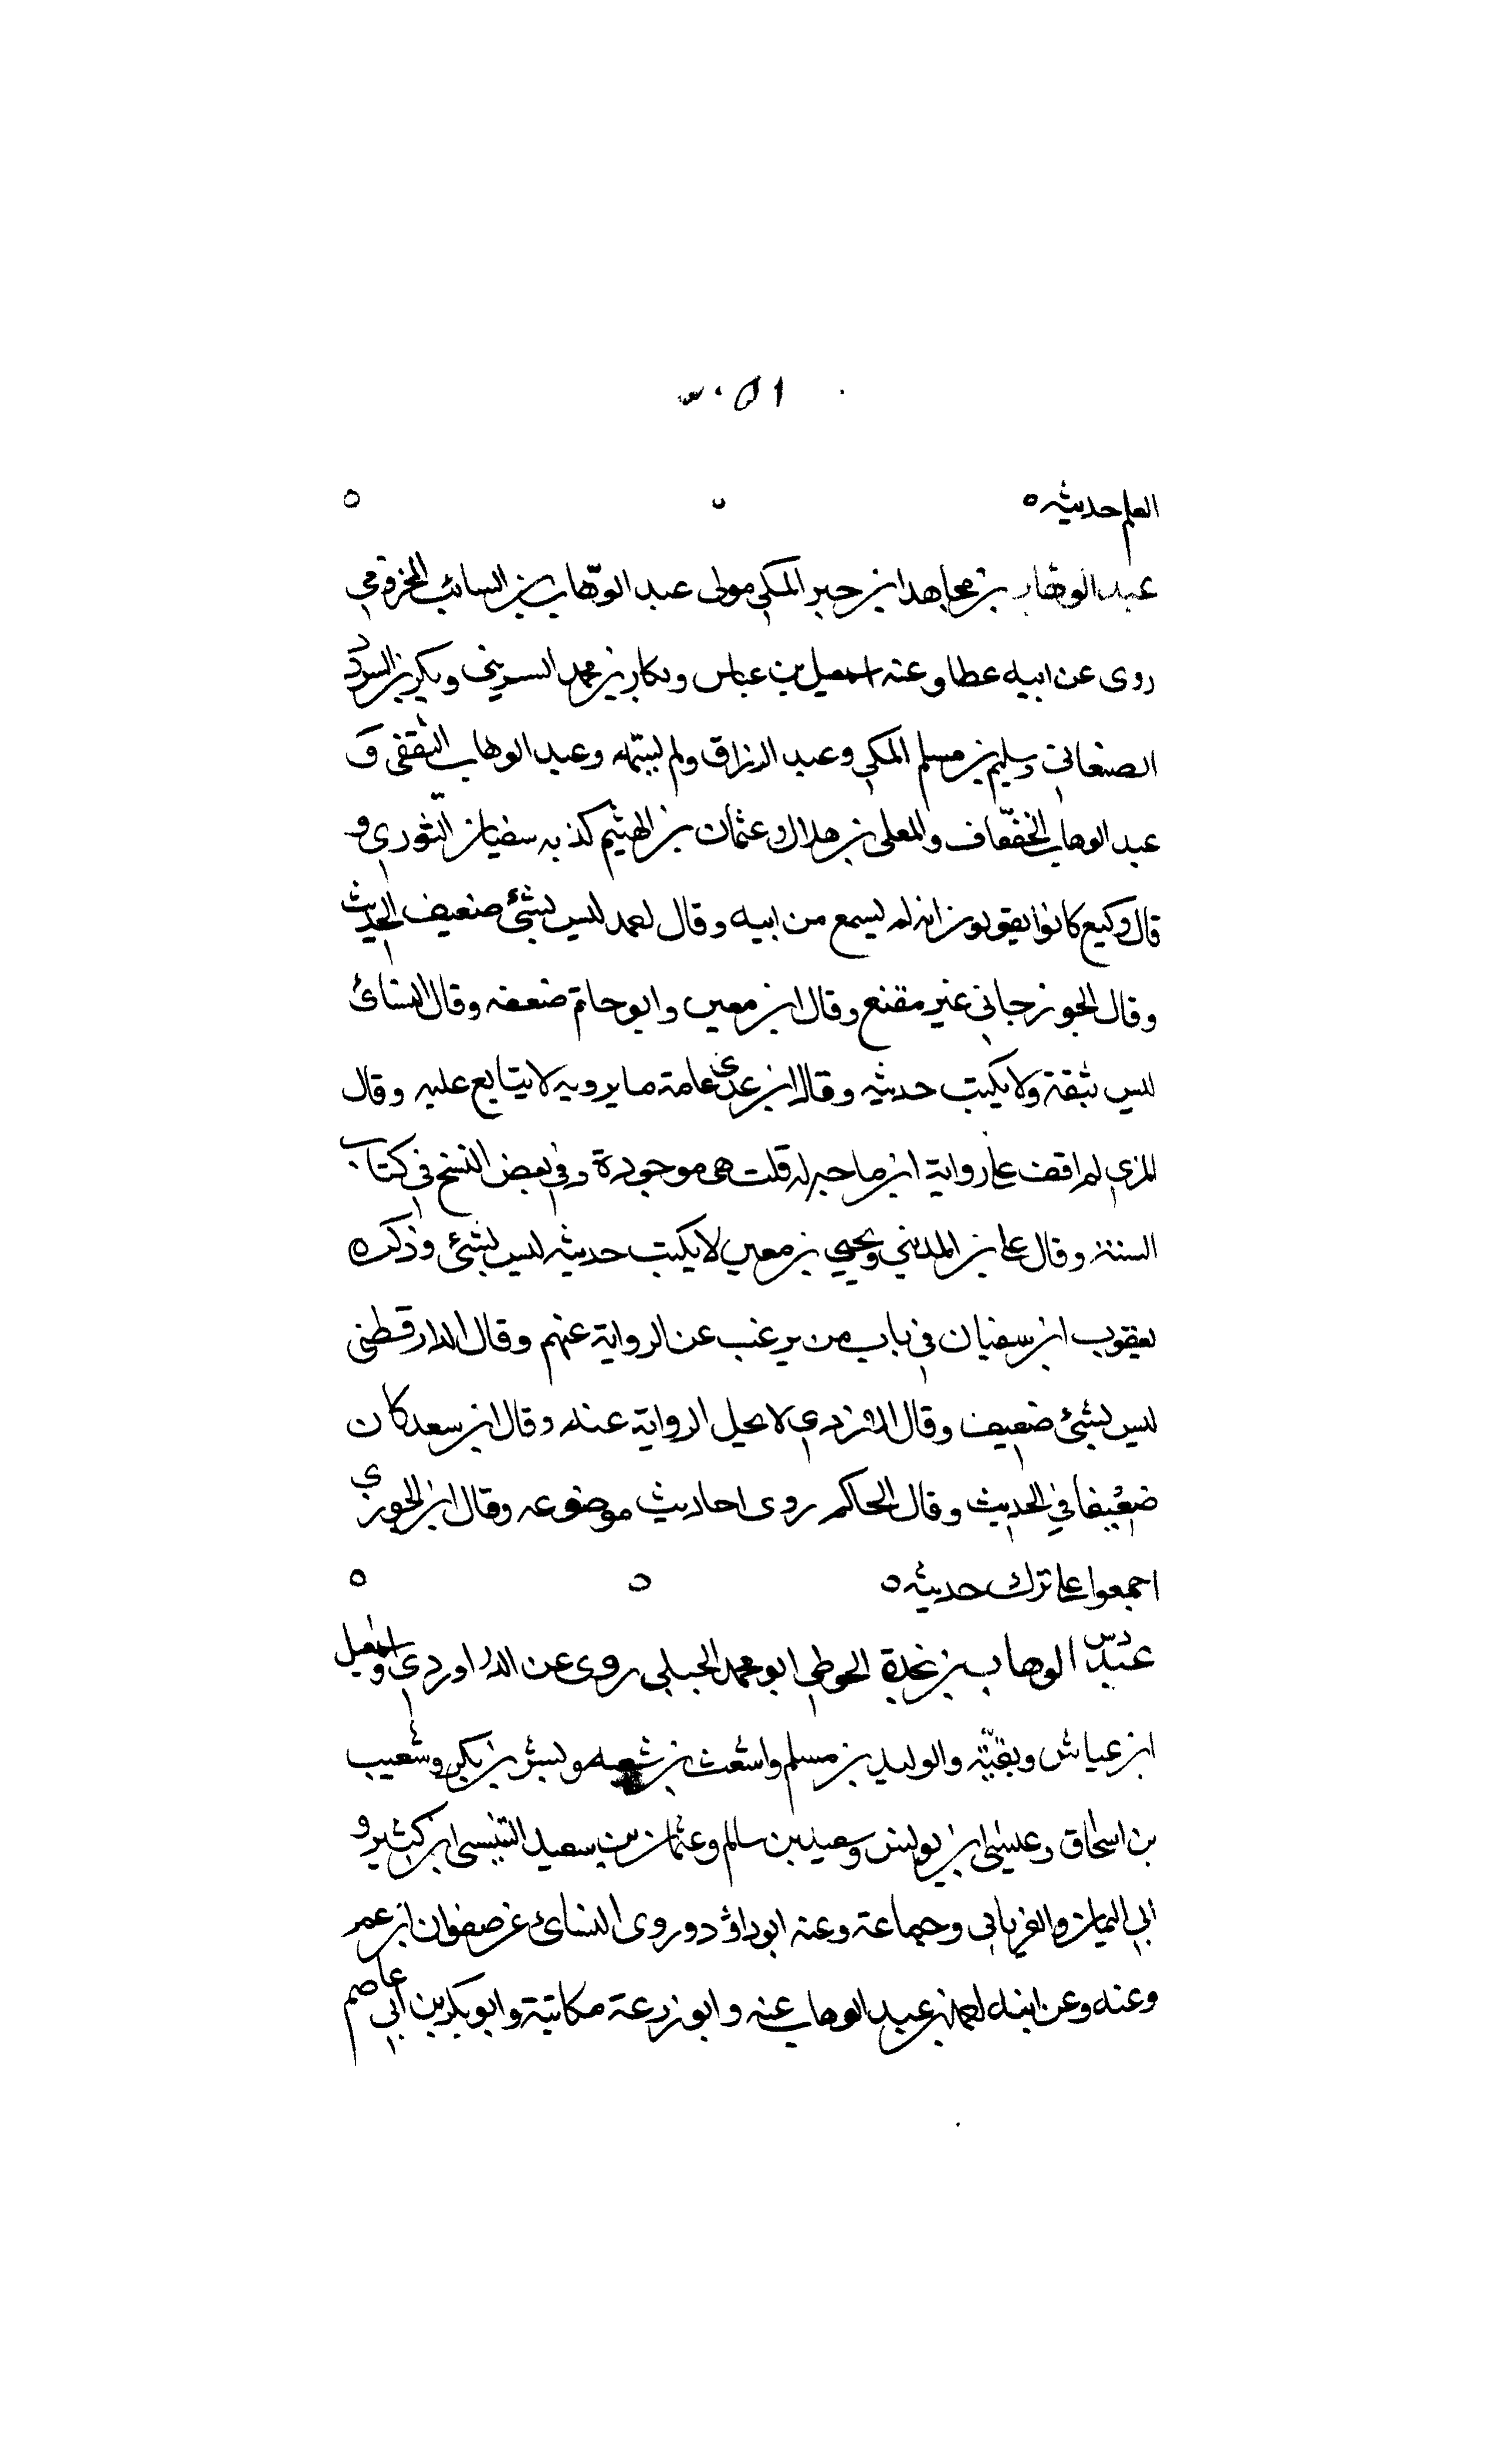 العلم حديثه ه ه
عبد الوهاب بن مجاهد ابن جبر المكي مولى عبد الوهاب بن السائب المخزومي
روى عن ابيه عطا وعنه اسمعيل بن عياس وبكار بن محمد السريني وبكر بن السرود
الصنعاني وسليم بن مسلم المكي وعبد الرزاق ولم يسمه وعبد الوهاب الثقفي و
عبد الوهاب الخفّاف والمعلى بن هلال وعثمان بن الهيثم كذبه سفيان الثوري و
قال وكيع كانوا يقولون انه لم يسمع من ابيه وقال احمد ليس بشئ ضعيف الحديث
وقال الجوزجاني غير مقنع وقال ابن معين وابو حاتم ضعفه وقال النسائ
ليس بثقة ولا يكتب حديثه وقال ابن عدي عامة ما يرويه لا يتابع عليه وقال
المزي لم اقف على رواية ابن ماجه له قلت هي موجودة وفي بعض النسخ في كتاب
السنة وقال علي بن المديني ويحيي بن معين لا يكتب حديثه ليس بشئ وذكره
يعقوب ابن سفيان في باب من يرغب عن الرواية عنهم وقال الدارقطني
ليس بشئ ضعيف وقال الازدي لا تحل الرواية عنه وقال ابن سعد كان
ضعيفا في الحديث وقال الحاكم روى احاديث موضوعه وقال ابن الجوزي
اجمعوا على ترك حديثه ه ه ه
عبد الوهاب بن نجدة الحوطي ابو محمد الجبلي روى عن الدراوردي واسمعيل
ابن عياش وبقيّة والوليد بن مسلم واشعث بن شعبه وبشر بن بكر وشعيب
بن اسحاق وعيسى ابن يونس وسعيد بن سالم وعثمان بن سعيد ابن كثير و
ابي اليمان والفريابي وجماعة وعنه ابو داؤد وروى النسائ عن صفوان ابن عمر
وعنه وعن ابنه احمد بن عبد الوهاب عنه وابو زرعة مكاتبة وابو بكر بن ابي عاصم